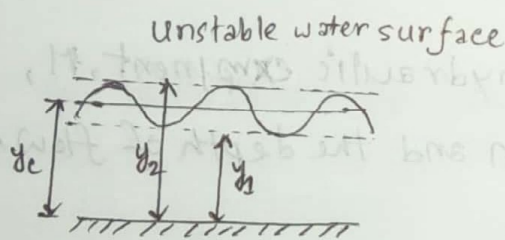 Unstable water surface
yc
y2
y1